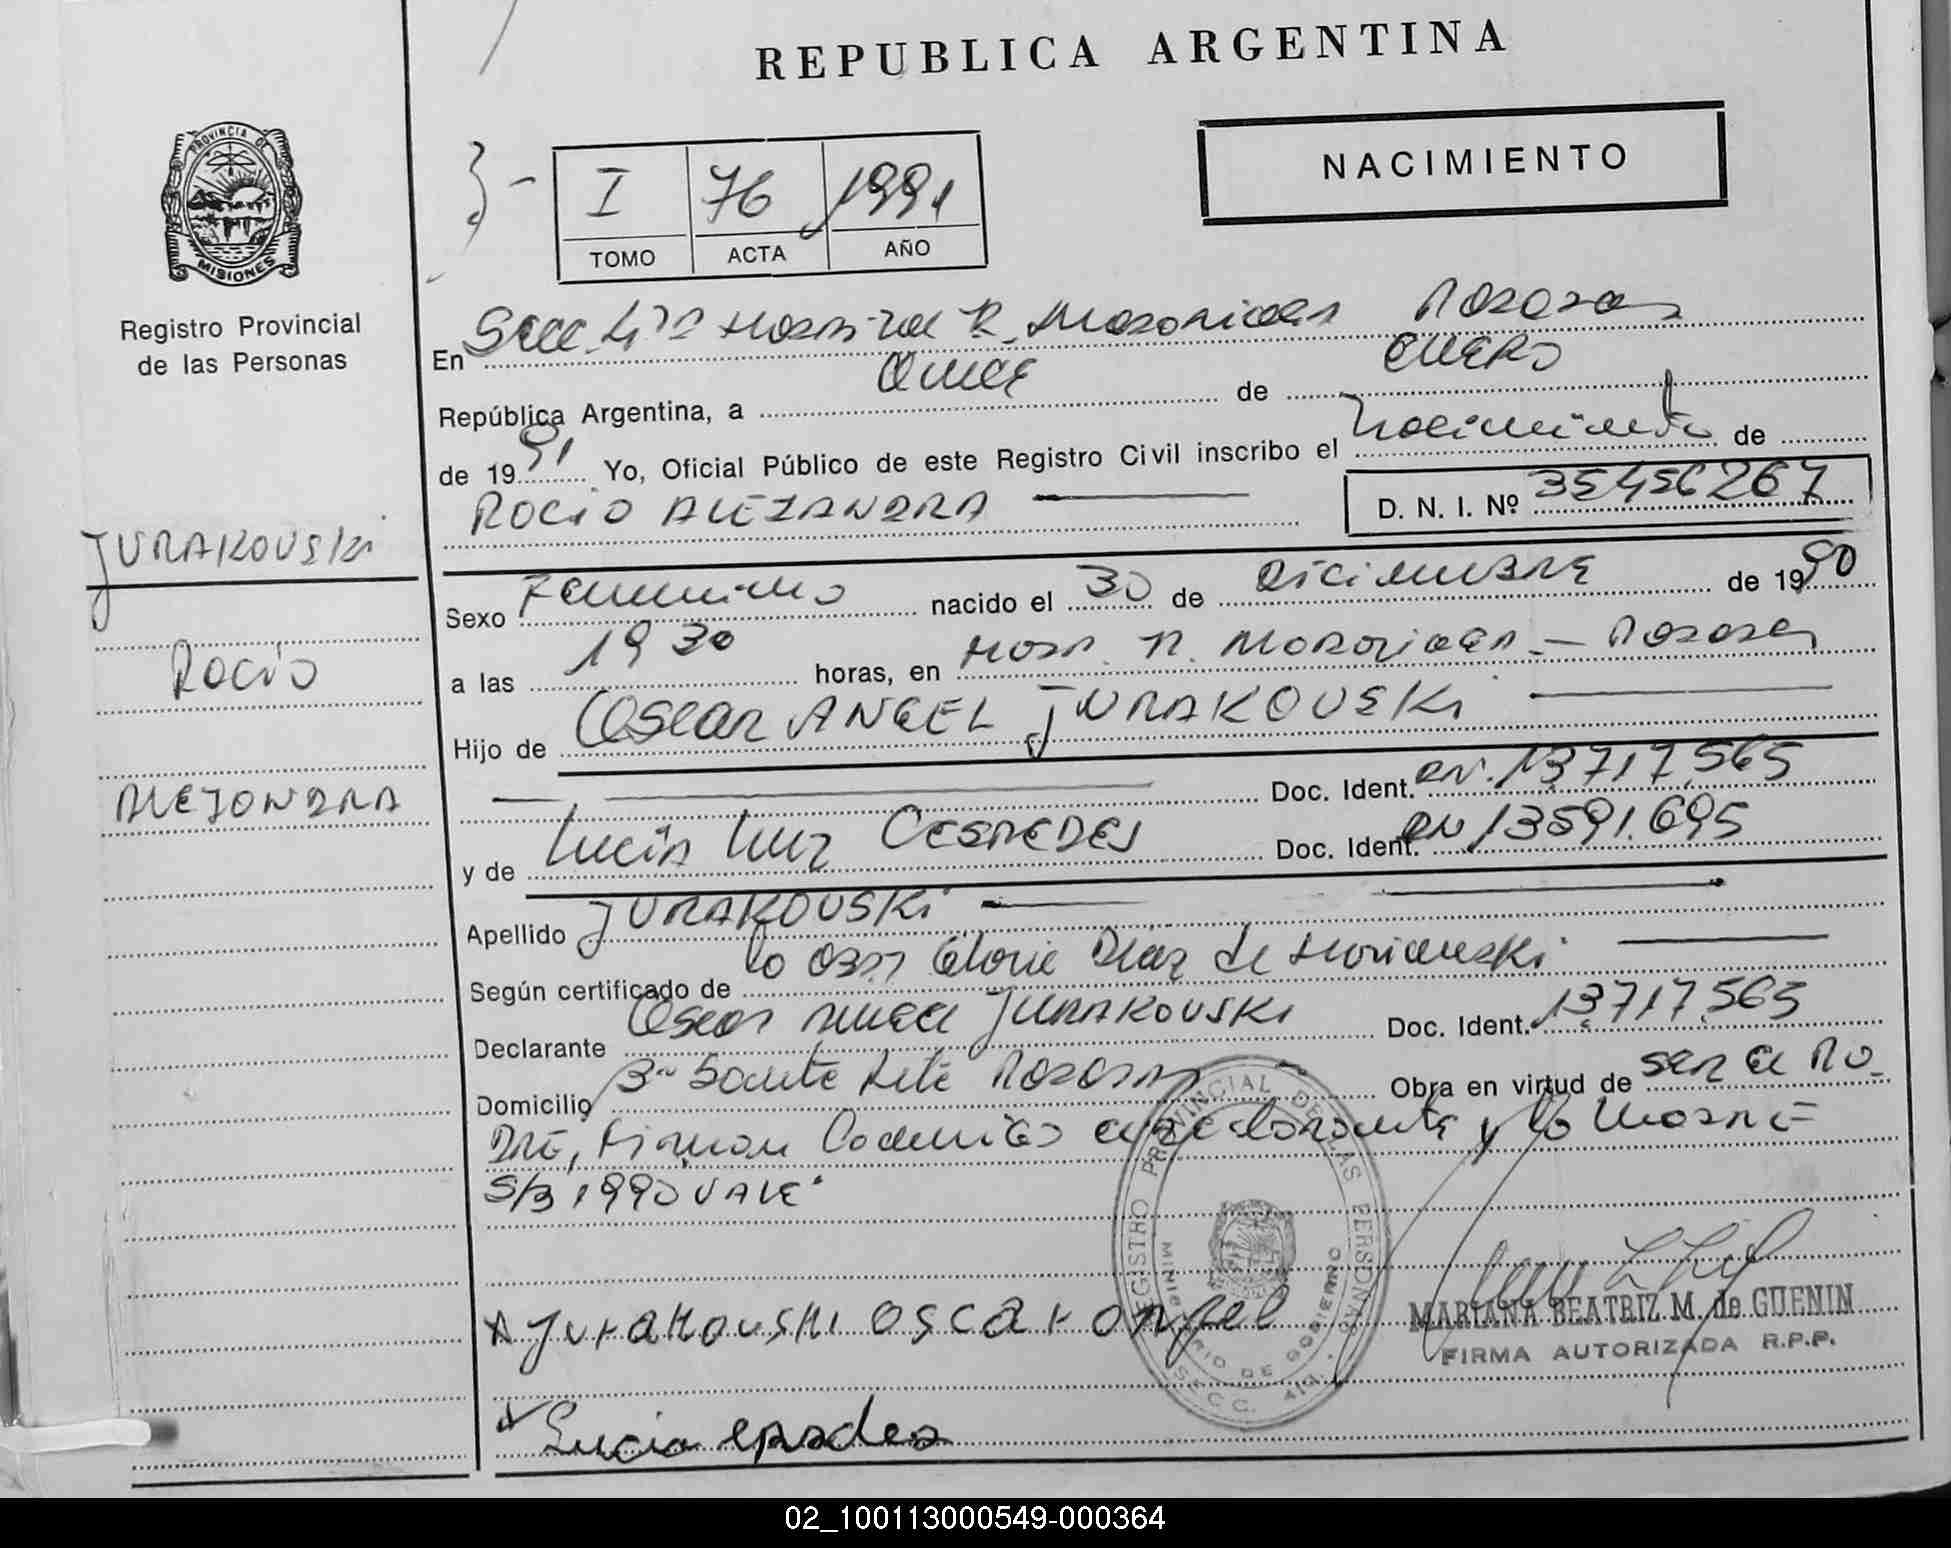 REPUBLICA ARGENTINA
PROVINCIA DE
MISIONES
Registro Provincial
de las Personas
I 76 1991
TOMO ACTA AÑO
NACIMIENTO
En Secc. 4ta Hospital R. Madariaga Posadas
República Argentina, a Once de Enero
de 1991 Yo, Oficial Público de este Registro Civil inscribo el Nacimiento de
ROCIO ALEJANDRA
D. N. I. Nº 35456267
JURAKOUSKi
Rocio
ALEJANDRA
Sexo Femenino nacido el 30 de Diciembre de 1990
a las 19 30 horas, en Hosp. R. Madariaga - Posadas
Hijo de Oscar ANGEL JURAKOUSKi
Doc. Ident. DNI. 13717.565
y de Lucia Luz CESPEDES Doc. Ident. DNI 13591.695
Apellido JURAKOUSKi
Según certificado de la Obst Gloria Diaz de
Declarante Oscar Angel JURAKOUSKi Doc. Ident. 13717.565
Domicilio Bo Santa Rita Posadas Obra en virtud de ser el PA-
DRE, Firman conmigo el declarante y la MADRE
S/B 1990 VALE
REGISTRO PROVINCIAL DE LAS PERSONAS
MINISTERIO DE GOBIERNO
SECC. 4ta.
Jurakouski oscar angel
MARIANA BEATRIZ M. de GUENIN
FIRMA AUTORIZADA R.P.P.
Lucia espedes
02_100113000549-000364